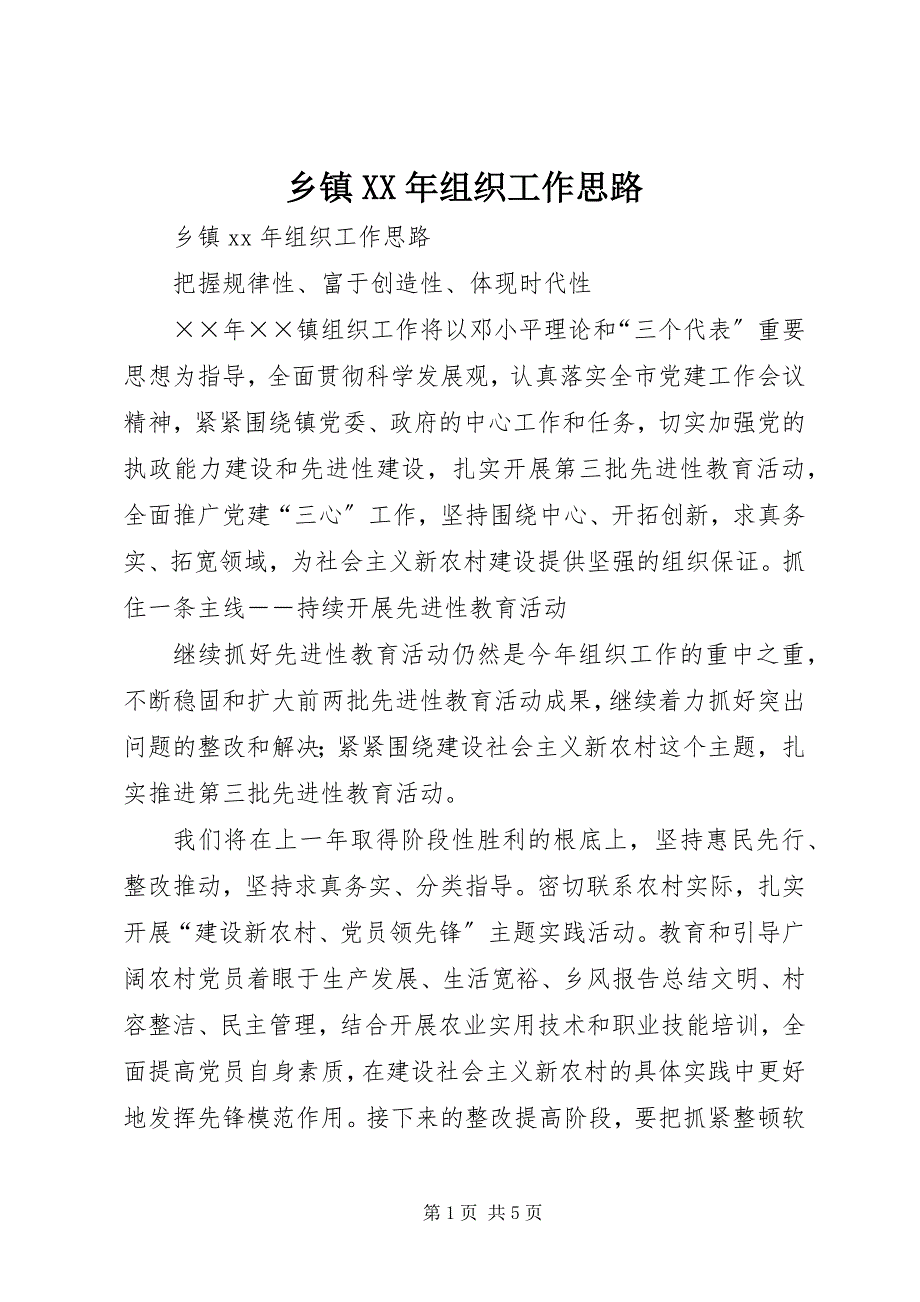 乡镇 XX 年组织工作思路
乡镇 xx 年组织工作思路
把握规律性、富于创造性、体现时代性
××年××镇组织工作将以邓小平理论和“三个代表〞重要
思想为指导，全面贯彻科学发展观，认真落实全市党建工作会议
精神，紧紧围绕镇党委、政府的中心工作和任务，切实加强党的
执政能力建设和先进性建设，扎实开展第三批先进性教育活动，
全面推广党建“三心〞工作，坚持围绕中心、开拓创新，求真务
实、拓宽领域，为社会主义新农村建设提供坚强的组织保证。抓
住一条主线－－持续开展先进性教育活动
继续抓好先进性教育活动仍然是今年组织工作的重中之重，
不断稳固和扩大前两批先进性教育活动成果，继续着力抓好突出
问题的整改和解决；紧紧围绕建设社会主义新农村这个主题，扎
实推进第三批先进性教育活动。
我们将在上一年取得阶段性胜利的根底上，坚持惠民先行、
整改推动，坚持求真务实、分类指导。密切联系农村实际，扎实
开展“建设新农村、党员领先锋〞主题实践活动。教育和引导广
阔农村党员着眼于生产发展、生活宽裕、乡风报告总结文明、村
容整洁、民主管理，结合开展农业实用技术和职业技能培训，全
面提高党员自身素质，在建设社会主义新农村的具体实践中更好
地发挥先锋模范作用。接下来的整改提高阶段，要把抓紧整顿软
第 1 页 共 5 页